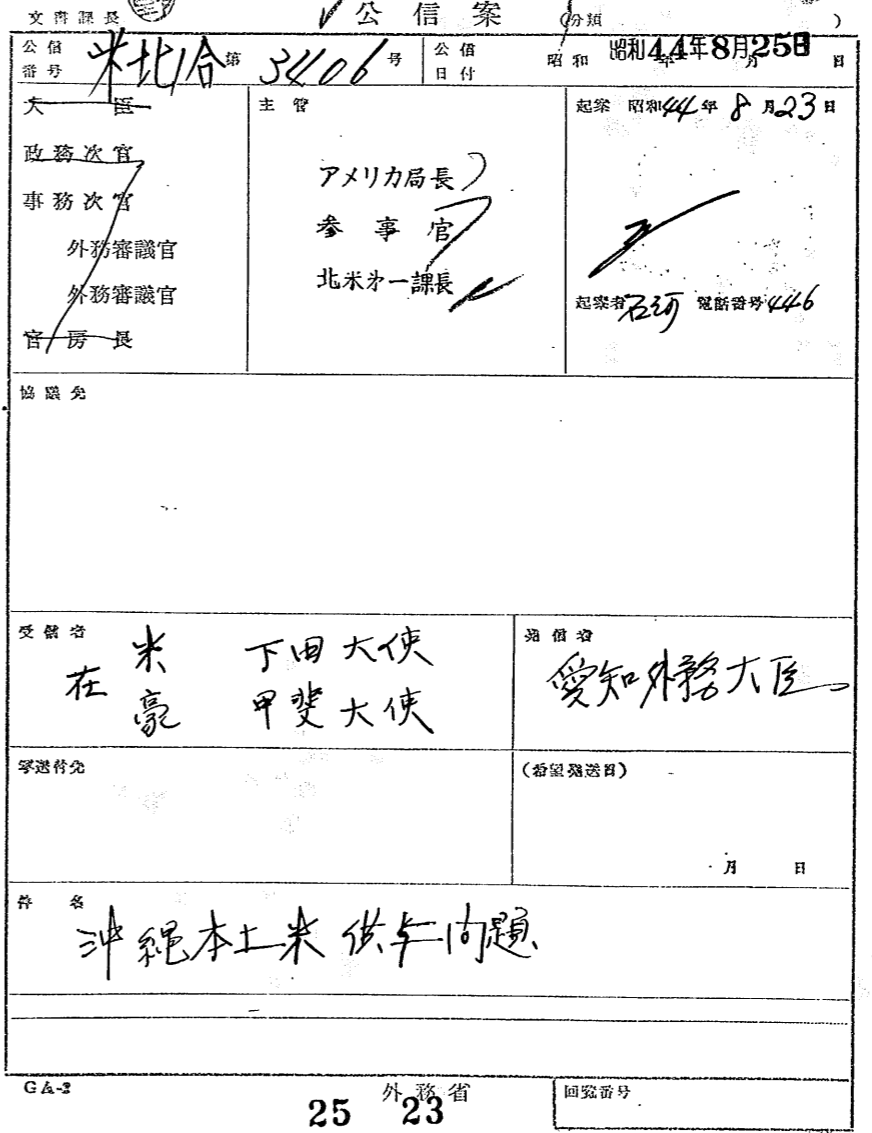 文書課長
公信案
(分類 )
公信番号 米北1合第3406号
公信日付 昭和 昭和44年8月25日 年 月 日
大臣
政務次官
事務次官
外務審議官
外務審議官
官房長
主管
アメリカ局長
参事官
北米第一課長
起案 昭和44年8月23日
起案者 石河 電話番号446
協議先
受信者
在 米 下田大使
豪 甲斐大使
発信者
愛知外務大臣
写送付先
(希望発送日)
月 日
件名
沖縄本土米供与問題
GA-2
外務省
回覧番号
25 23